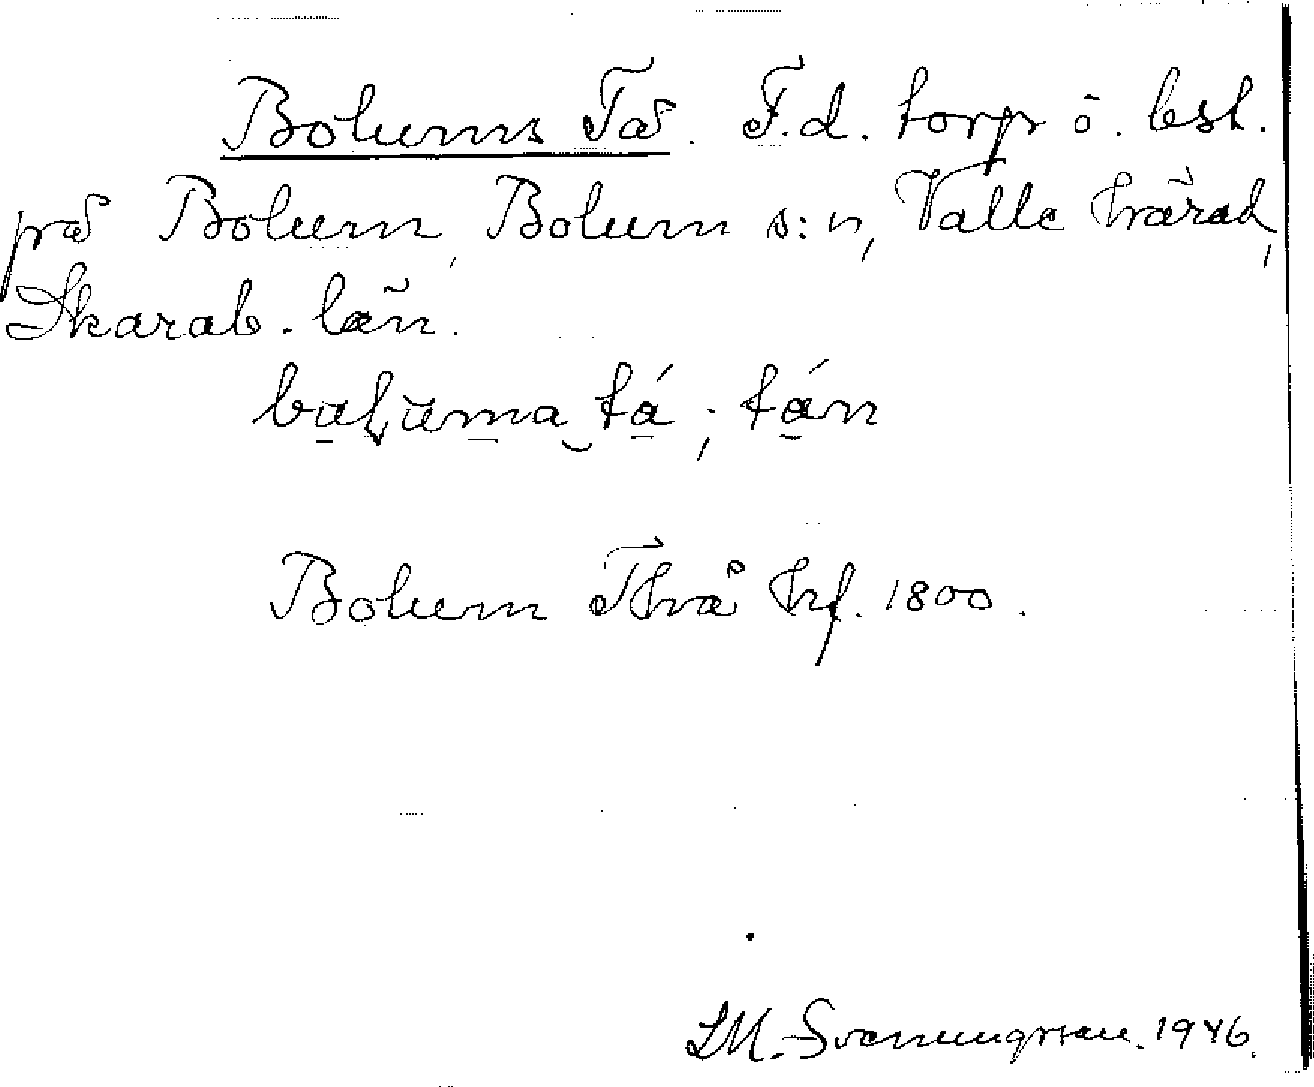 Bolums Tå. F.d. torp ö. best.
på Bolum, Bolum s:n, Valle härad,
Skarab. län.
baḷuma tá; tán
Bolum Thå hf. 1800.
LM. Svenungsson. 1946.